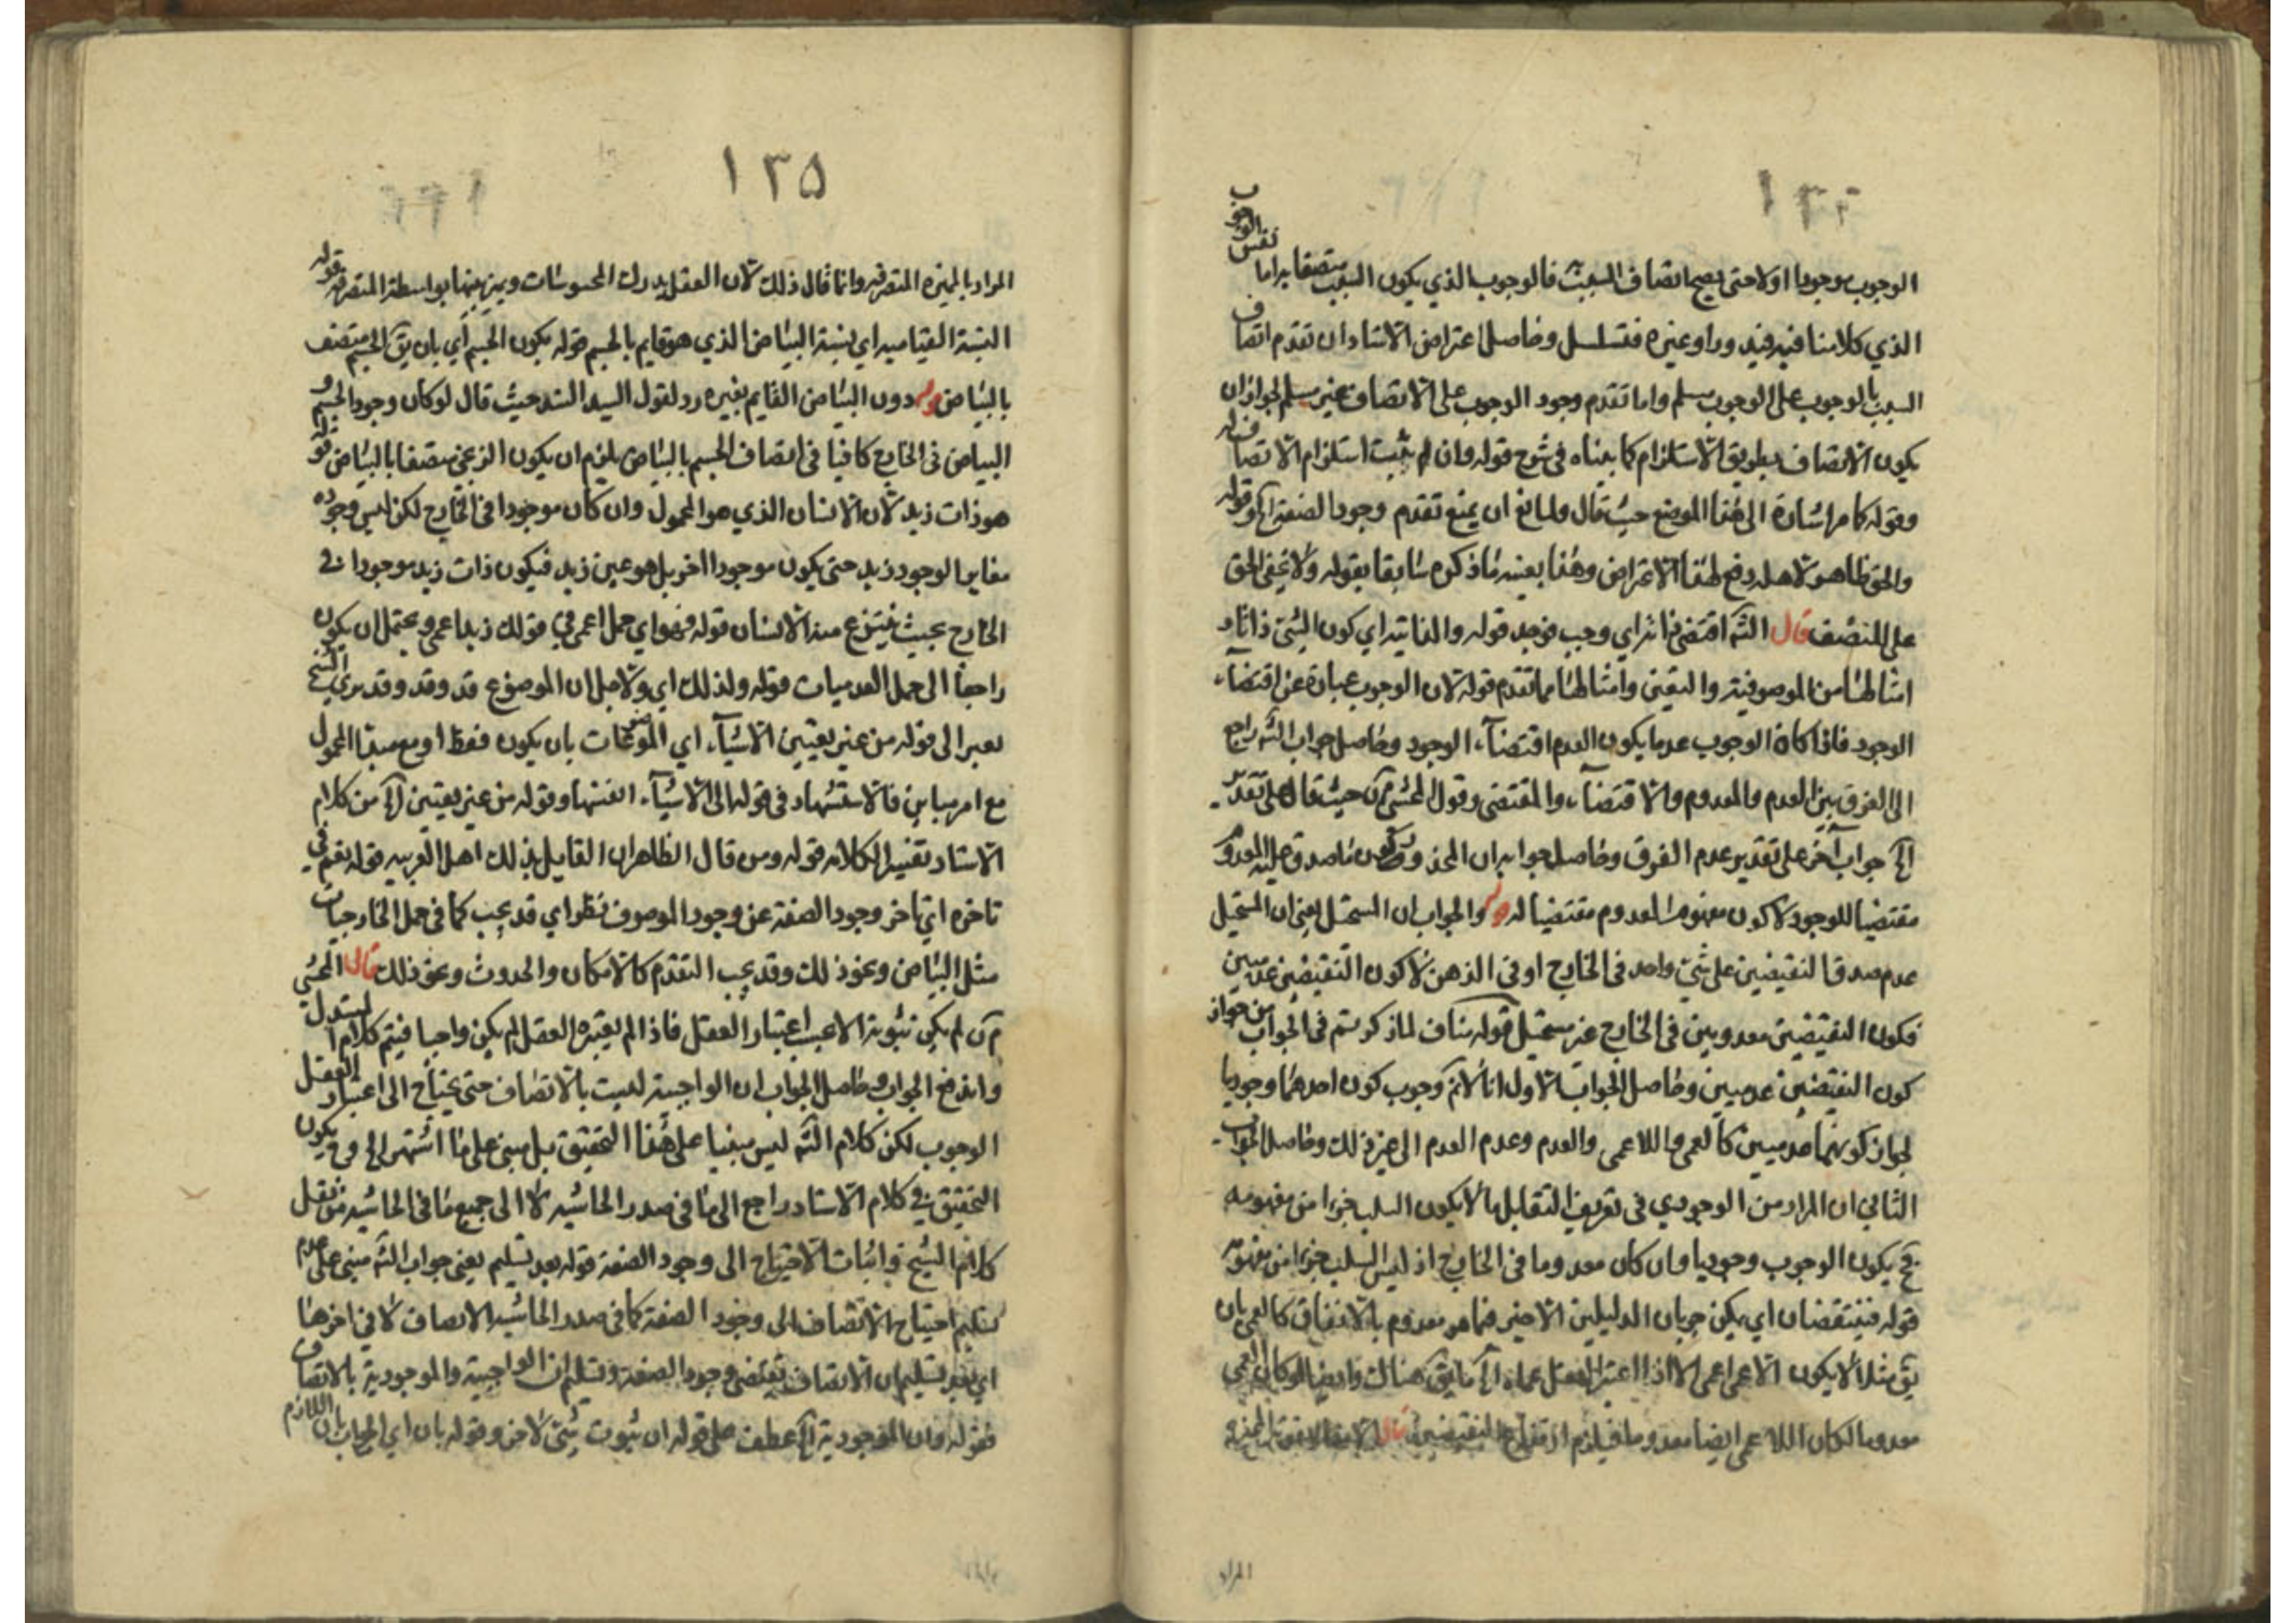 الوجوب موجودا اولا حتى يصح اتصاف السبب فالوجوب الذي يكون السبب متصفا به اما نفس الوجوب
الذي كلامنا فيه فيدور او غيره فتسلسل وحاصل اعتراض الاستاد ان تقدم اتصاف
السبب بالوجوب على الوجوب مسلم واما تقدم وجود الوجوب على الاتصاف غير مسلم لجواز ان
يكون الاتصاف بطريق الاستلزام كما بيناه في شرح قوله وان لم يثبت استلزام الاتصاف قوله
وقوله كما مر اشارة الى هذا الموضع حيث قال وللمانع ان يمنع تقدم وجود الصفة الخ قوله
والحق ظاهر لاهله دفع لهذا الاعتراض وهذا بعينه ما ذكره سابقا بقوله ولا يخفى الحق
على المنصف قال الش اقتضى ذاته اي وجب فوجد قوله والذاتية اي كون الشئ ذاتا و
امثالها من الموصوفية والتعين وامثالها مما تقدم قوله لان الوجوب عبارة عن اقتضاء
الوجود فاذا كان الوجوب عدما يكون العدم اقتضاء الوجود وحاصل جواب الش راجع
الى الفرق بين العدم والمعدوم والاقتضاء والمقتضى وقول المحشي حيث قال على تقدير
الخ جواب آخر على تقدير عدم الفرق وحاصل جوابه ان المحذور كون ما صدق عليه المعدوم
مقتضيا للوجود لا كون مفهوم المعدوم مقتضيا له قوله والجواب ان المستحيل يعني ان المستحيل
عدم صدق النقيضين على شئ واحد في الخارج او في الذهن لا كون النقيضين عدميين
فكون النقيضين معدومين في الخارج غير مستحيل قوله مناف لما ذكرتم في الجواب من جواز
كون النقيضين عدميين وحاصل الجواب الاول انا لانم وجوب كون احدهما وجوديا
لجواز كونهما عدميين كالعمى واللاعمى والعدم وعدم العدم الى غير ذلك وحاصل الجواب
الثاني ان المراد من الوجودي في تعريف التقابل ما لا يكون السلب جزءا من مفهومه
فح يكون الوجوب وجوديا وان كان معدوما في الخارج اذ ليس السلب جزءا من مفهومه
قوله فينتقضان اي يمكن جريان الدليلين الاخيرين فيما هو معدوم بالاتفاق كالعمى بان
يق مثلا لا يكون الاعمى اعمى الا اذا اعتبر العقل عماه الخ ما يق هناك وايضا لو كان العمى
معدوما لكان اللاعمى ايضا معدوما فيلزم ارتفاع النقيضين قال
المراد
١٣٥
المراد بالمميزة المتصرفة وانما قال ذلك لان العقل يدرك المحسوسات ويميز بينها بواسطة المتصرفة قوله
النسبة القيامية اي نسبة البياض الذي هو قايم بالجسم قوله يكون الجسم اي بان يق الجسم متصف
بالبياض قوله دون البياض القايم بغيره رد لقول السيد السند حيث قال لو كان وجود الجسم و
البياض في الخارج كافيا في اتصاف الجسم بالبياض يلزم ان يكون الزنجي متصفا بالبياض قوله
هو ذات زيد لان الانسان الذي هو المحمول وان كان موجودا في الخارج لكن ليس وجوده
مغايرا لوجود زيد حتى يكون موجودا اخر بل هو عين زيد فيكون ذات زيد موجودا في
الخارج بحيث ينتزع منه الانسان قوله فهو اي حمل اعمى في قولك زيد اعمى ويحتمل ان يكون
راجعا الى حمل العدميات قوله ولذلك اي ولاجل ان الموضوع قد وقد وقد يرى الشيخ
يعبر الى قوله من غير تعيين الاشياء اي الموضوعات بان يكون فقط او مع مبدا المحمول
مع امر مباين فالاستشهاد في قوله الى الاشياء انفسها وقوله من غير تعيين الخ من كلام
الاستاد تفسيرا لكلامه قوله ومن قال الظاهر ان القايل بذلك اهل العربيه قوله نعم في
تاخره اي تاخر وجود الصفة عن وجود الموصوف نظر اي قد يجب كما في حمل الخارجيات
مثل البياض ونحو ذلك وقد يجب التقدم كالامكان والحدوث ونحو ذلك قال المحشي
لم يكن ثبوته الا بحسب اعتبار العقل فاذا لم يعتبره العقل لم يكن واجبا فيتم كلام المستدل
واندفع الجواب وحاصل الجواب ان الواجبية ليست بالاتصاف حتى يحتاج الى اعتبار العقل
الوجوب لكن كلام الش ليس مبنيا على هذا التحقيق بل مبني على ما اشتهر الخ وفي يكون
التحقيق في كلام الاستاد راجع الى ما في صدر الحاشيه لا الى جميع ما في الحاشيه من نقل
كلام الشيخ واثبات الاحتياج الى وجود الصفة قوله بعد تسليم يعني جواب الش مبني على عدم
تسليم احتياج الاتصاف الى وجود الصفة كما في صدر الحاشيه الاتصاف لا في اخرها
اي بعد تسليم ان الاتصاف يقتضي وجود الصفة وتسليم ان الواجبية والموجودية بالاتصاف
فقوله وان الموجودية الخ عطف على قوله ان ثبوت شئ لاخر وقوله بان اي الجواب بان اللازم